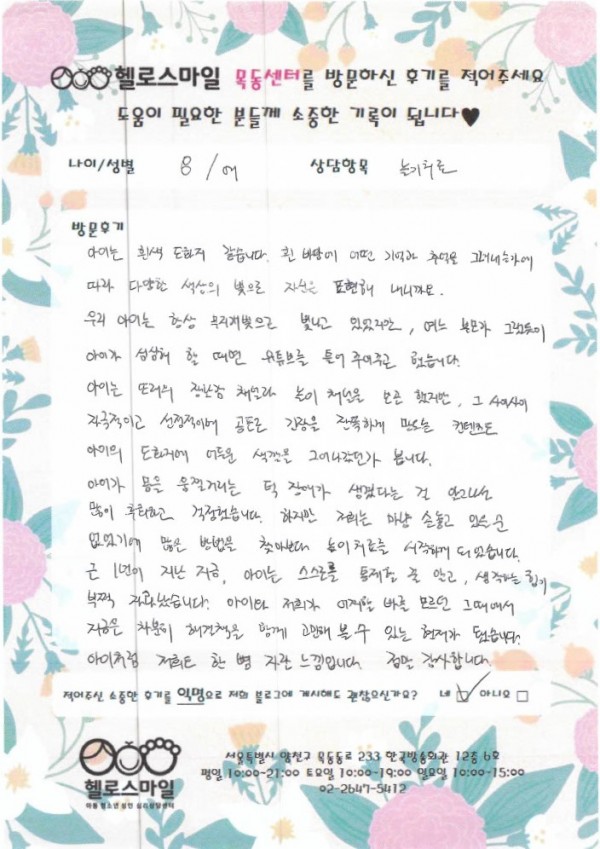 헬로스마일 목동센터를 방문하신 후기를 적어주세요
도움이 필요한 분들께 소중한 기록이 됩니다♥
나이/성별 8 / 여 상담항목 놀이치료
방문후기
아이는 흰색 도화지 같습니다. 흰 바탕에 어떤 기억과 추억을 그려내는가에
따라 다양한 색상의 빛으로 자신을 표현해 내니까요.
우리 아이는 항상 무지개빛으로 빛나고 있었지만, 여느 부모가 그렇듯이
아이가 심심해 할 때면 유튜브를 틀어 주곤 했습니다.
아이는 또래의 장난감 채널과 놀이 채널을 보곤 했지만, 그 사이사이
자극적이고 선정적이며 공포로 긴장을 잔뜩하게 만드는 컨텐츠도
아이의 도화지에 어두운 색깔을 그려나갔던가 봅니다.
아이가 몸을 움찔거리는 틱 장애가 생겼다는 걸 안 그
많이 후회하고 걱정했습니다. 하지만 저희는 마냥 손놓고 있을 순
없었기에 많은 방법을 찾아보다 놀이치료를 시작하게 되었습니다.
근 1년이 지난 지금, 아이는 스스로를 통제할 줄 알고, 생각하는 힘이
부쩍 자라났습니다. 아이와 저희가 어찌할 바를 모르던 그때에서
지금은 차분히 해결책을 함께 고민해 볼 수 있는 현재가 됐습니다.
아이처럼 저희도 한 뼘 자란 느낌입니다. 정말 감사합니다.
적어주신 소중한 후기를 익명으로 저희 블로그에 게시해도 괜찮으신가요? 네 ☑ 아니요 □
헬로스마일
아동 청소년 성인 심리상담센터
서울특별시 양천구 목동동로 233 한국방송회관 12층 6호
평일 10:00-21:00 토요일 10:00-19:00 일요일 10:00-15:00
02-2647-5412